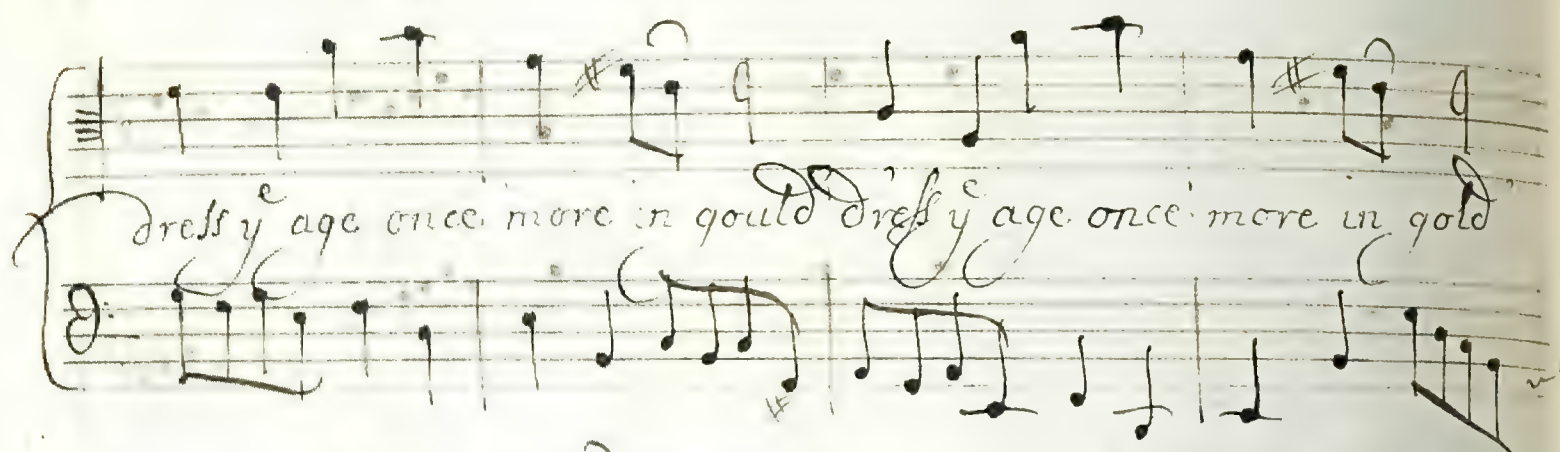 dress yᵉ age once more in gould dress yᵉ age once more in gold